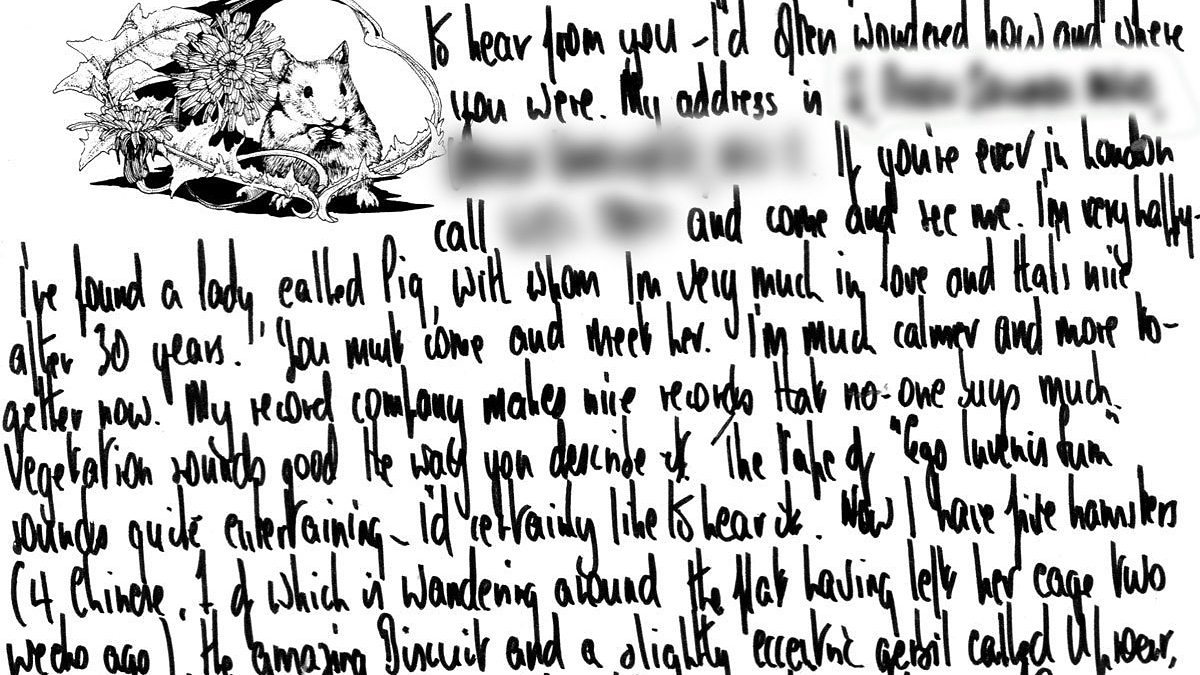 to hear from you - I'd often wondered how and where
you were. My address is
If you're ever in London
call and come and see me. I'm very happy -
I've found a lady, called Pig, with whom I'm very much in love and that's nice
after 30 years. You must come and meet her. I'm much calmer and more to-
gether now. My record company makes nice records that no-one buys much.
Vegetation sounds good the way you describe it. The tape of "Ego
sounds quite entertaining - I'd certainly like to hear it. Now I have five hamsters
(4 Chinese, 1 of which is wandering around the flat having left her cage two
weeks ago), the amazing Biscuit and a slightly eccentric gerbil called Uproar,